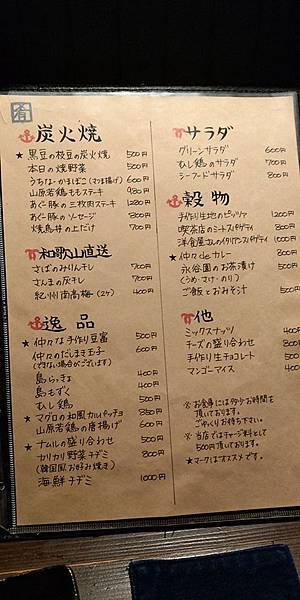 肴
炭火焼
★ 黒豆の枝豆の炭火焼 500円
本日の焼野菜 500円
うちなーかまぼこ(マヨ揚げ) 600円
山原若鶏ももステーキ 980円
あぐー豚の三枚肉ステーキ 1280円
あぐー豚のソーセージ 800円
焼鳥丼の上だけ 700円
和歌山直送
さばのみりん干し 700円
さんまの灰干し 700円
紀州南高梅(2ケ) 400円
逸品
★ 仲々な手作り豆富 500円
仲々のだしまき玉子 600円
(できない場合がございます)
島らっきょ 400円
島もずく 400円
むし鶏 500円
★ マグロの和風カルパッチョ 850円
山原若鶏の唐揚げ 600円
★ ナムルの盛り合わせ 500円
カリカリ野菜チヂミ 800円
(韓国風お好み焼き)
海鮮チヂミ 1000円
サラダ
グリーンサラダ 600円
むし鶏のサラダ 700円
シーフードサラダ 800円
穀物
手作り生地のピッツァ 1200円
喫茶店のミートスパゲティ 800円
洋食屋さんのイタリアンスパゲティ 1000円
★ 仲々deカレー 800円
永谷園のお茶漬け 500円
(うめ・さけ・のり)
ご飯とおみそ汁 500円
他
ミックスナッツ 400円
チーズの盛り合わせ 800円
手作り生チョコレート 500円
マンゴーアイス 400円
※ お食事には多少お時間を
頂いております。
ごゆっくりお待ち下さい。
※ 当店ではチャージ料として
500円頂いております。
★マークはオススメです。